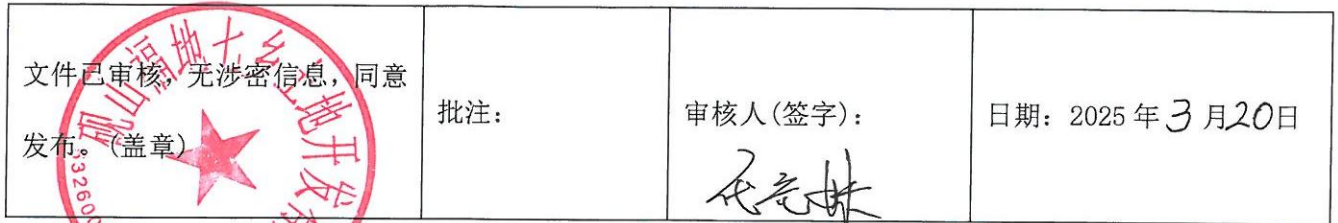 文件已审核，无涉密信息，同意
发布。(盖章)
批注：
审核人(签字)：
日期：2025年3月20日
砚山福地七乡土地开发有
53260